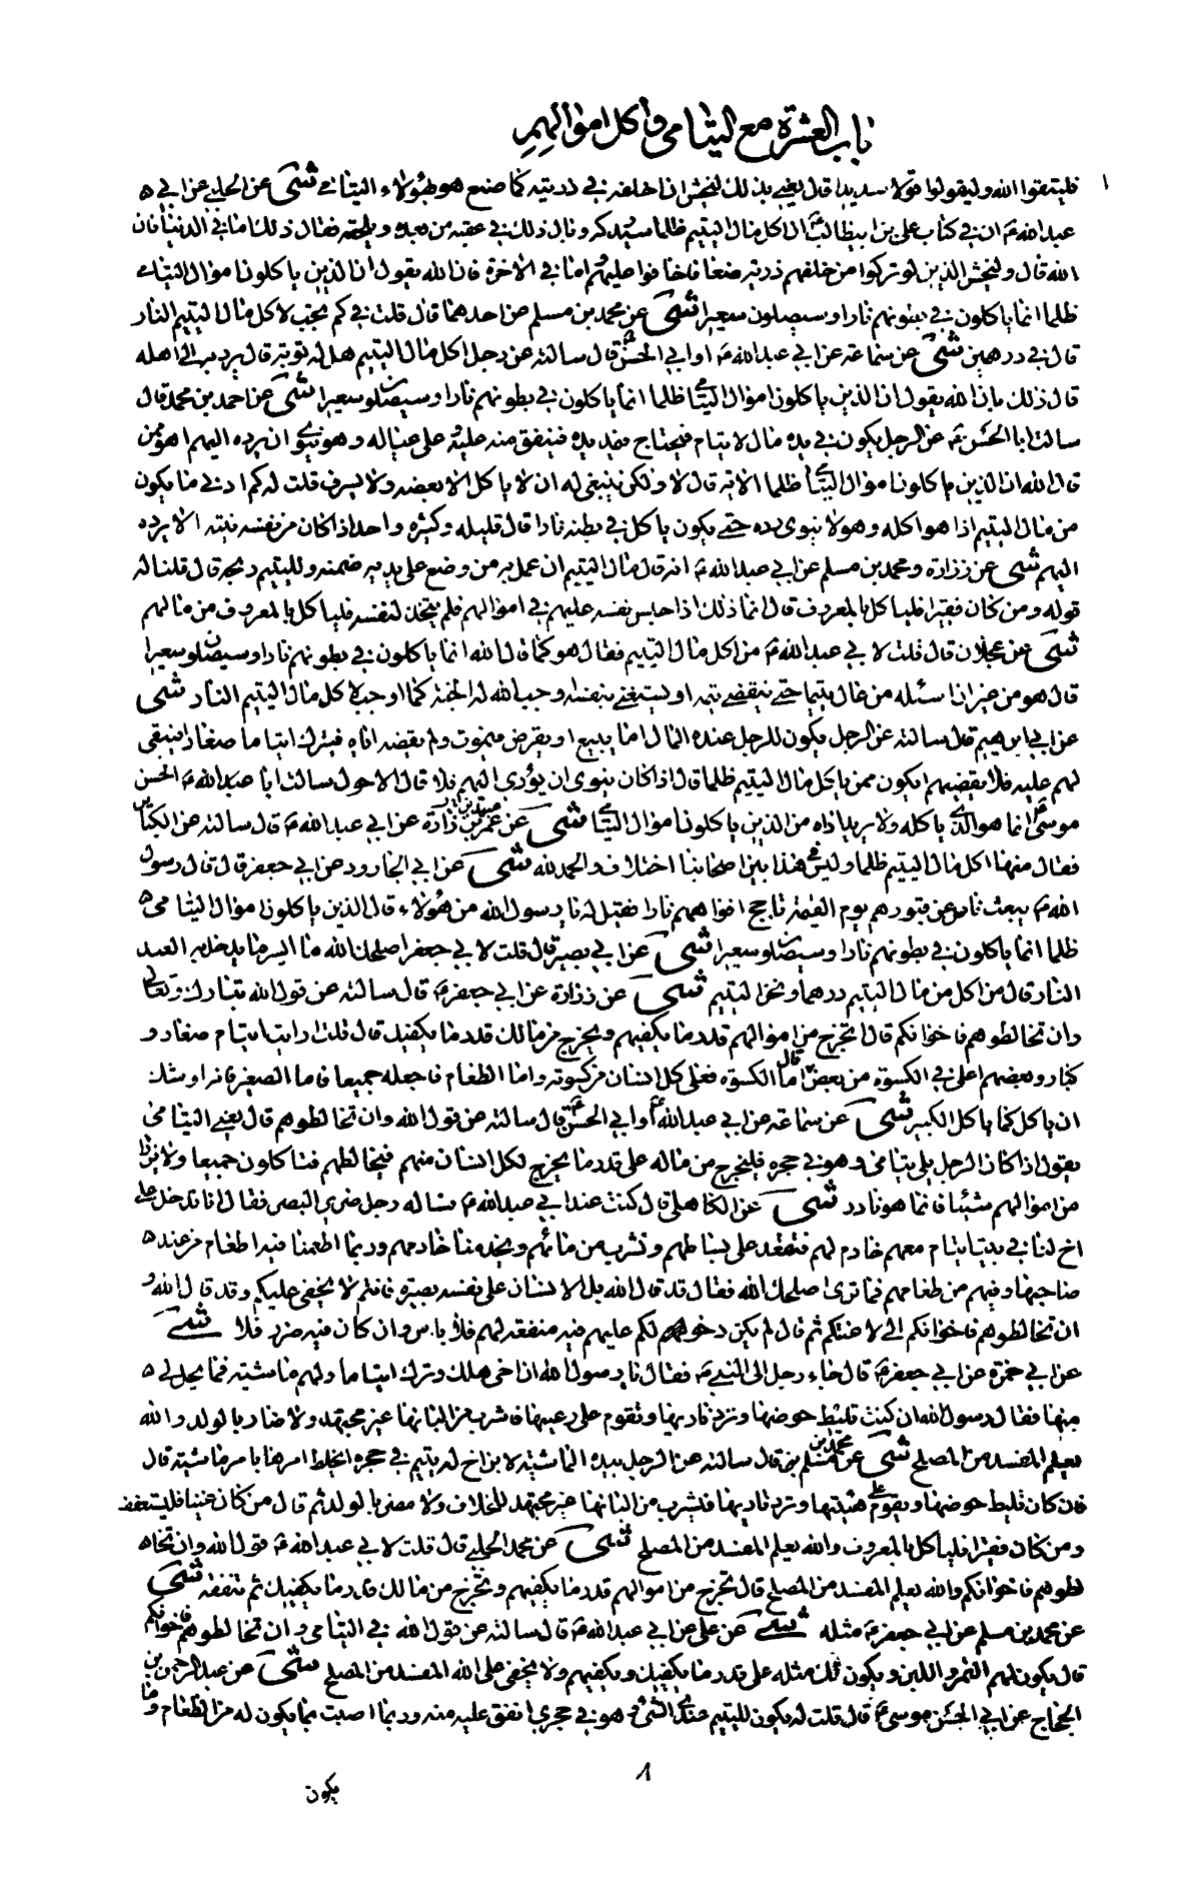 باب العشرة مع اليتامى واكل اموالهم
١
فليتقوا الله وليقولوا قولا سديدا قال يعني بذلك ليخش ان اخلفه في ذريته كما صنع هو بهؤلاء اليتامى شى عن الحلبي عن ابي ه
عبد الله ع ان في كتاب علي بن ابيطالب ان اكل مال اليتيم ظلما سيدركه وبال ذلك في عقبه من بعده ويلحقه فقال ذلك اما في الدنيا فان
الله قال وليخش الذين لو تركوا من خلفهم ذرية ضعافا خافوا عليهم واما في الاخرة فان الله يقول ان الذين ياكلون اموال اليتامى
ظلما انما ياكلون في بطونهم نارا وسيصلون سعيرا شى عن محمد بن مسلم عن احدهما قال قلت في كم يجب لاكل مال اليتيم النار
قال في درهمين شى عن سماعة عن ابي عبد الله ع او ابي الحسن ع قال سالته عن رجل اكل مال اليتيم هل له توبة قال يرد به الى اهله
قال ذلك بان الله يقول ان الذين ياكلون اموال اليتامى ظلما انما ياكلون في بطونهم نارا وسيصلون سعيرا شى عن احمد بن محمد قال
سالت ابا الحسن ع عن الرجل يكون في يده مال لايتام فيحتاج فيمد يده فينفق منه عليه وعلى عياله وهو ينوي ان يرده اليهم اهو ممن
قال الله ان الذين ياكلون اموال اليتامى ظلما الاية قال لا ولكن ينبغي له ان لا ياكل الا بقصد ولا يسرف قلت له كم ادنى ما يكون
من مال اليتيم اذا هو اكله وهو لا ينوي رده حتى يكون ياكل في بطنه نارا قال قليله وكثيره واحد اذا كان من نفسه نيته الا يرده
اليهم شى عن زرارة ومحمد بن مسلم عن ابي عبد الله ع انه قال مال اليتيم ان عمل به من وضع على يديه ضمنه ولليتيم ربحه قال قلنا له
قوله ومن كان فقيرا فلياكل بالمعروف قال انما ذلك اذا حبس نفسه عليهم في اموالهم فلم يتخذ لنفسه فلياكل بالمعروف من مالهم
شى عن عجلان قال قلت لابي عبد الله ع من اكل مال اليتيم فقال هو كما قال الله انما ياكلون في بطونهم نارا وسيصلون سعيرا
قال هو من غير ان اسئله من عال يتيما حتى ينقضي يتمه او يستغني بنفسه اوجب الله له الجنة كما اوجب لاكل مال اليتيم النار شى
عن ابي ابرهيم قال سالته عن الرجل يكون للرجل عنده المال اما ببيع او بقرض فيموت ولم يقضه اياه فيترك ايتاما صغارا فيبقى
لهم عليه فلا يقضيهم ايكون ممن ياكل مال اليتيم ظلما قال اذا كان ينوي ان يؤدي اليهم فلا قال الاحول سالت ابا عبد الله ع الحسن
موسى ع انما هو الذي ياكله ولا يريد اداه من الذين ياكلون اموال اليتامى شى عن عبيد بن زرارة عن ابي عبد الله ع قال سالته عن الكبائر
فقال منها اكل مال اليتيم ظلما وليس في هذا بين اصحابنا اختلاف والحمد لله شى عن ابي الجارود عن ابي جعفر قال قال رسول
الله ص يبعث ناس عن قبورهم يوم القيمة تاجج افواههم نارا فقيل له يا رسول الله من هؤلاء قال الذين ياكلون اموال اليتامى ه
ظلما انما ياكلون في بطونهم نارا وسيصلون سعيرا شى عن ابي بصير قال قلت لابي جعفر اصلحك الله ما ايسر ما يدخل به العبد
النار قال من اكل من مال اليتيم درهما ونحن اليتيم شى عن زرارة عن ابي جعفر ع قال سالته عن قول الله تبارك وتعالى
وان تخالطوهم فاخوانكم قال تخرج من اموالهم قدر ما يكفيهم وتخرج من مالك قدر ما يكفيك قال قلت ارايت ايتام صغار و
كبار وبعضهم اعلى في الكسوة من بعض قال اما الكسوة فعلى كل انسان من كسوته واما الطعام فاجعله جميعا فاما الصغير فانه اوشك
ان ياكل كما ياكل الكبير شى عن سماعة عن ابي عبد الله او ابي الحسن ع قال سالته عن قول الله وان تخالطوهم قال يعني اليتامى
يقول اذا كان الرجل يلي يتامى وهو في حجره فليخرج من ماله على قدر ما يخرج لكل انسان منهم فيخالطهم فياكلون جميعا ولا يرزا
من اموالهم شيئا فانما هو نار شى عن الكاهلي قال كنت عند ابي عبد الله ع فساله رجل ضرير البصر فقال انا ندخل على
اخ لنا في بيت ايتام معهم خادم لهم فنقعد على بساطهم ونشرب من مائهم ويخدمنا خادمهم وربما اطعمنا فيه الطعام من عند ه
صاحبنا وفيهم من طعامهم فما ترى اصلحك الله فقال قد قال الله بل الانسان على نفسه بصيرة فانتم لا يخفى عليكم وقد قال الله و
ان تخالطوهم فاخوانكم الى لاعنتكم ثم قال ان يكن دخولكم عليهم فيه منفعة لهم فلا باس وان كان فيه ضرر فلا شى
عن ابي حمزة عن ابي جعفر ع قال جاء رجل الى النبي ص فقال يا رسول الله ان اخي هلك وترك ايتاما ولهم ماشية فما يحل لي ه
منها فقال رسول الله ان كنت تليط حوضها وترد نادتها وتقوم على رعيتها فاشرب من البانها غير مجتهد ولا ضار بالولد والله
يعلم المفسد من المصلح شى عن محمد بن مسلم قال سالته عن الرجل بيده الماشية لابن اخ له يتيم في حجره ايخلط امرها بامر ماشيته قال
فان كان يليط حوضها ويقوم على هنئتها ويرد نادتها فليشرب من البانها غير مجتهد للحلاب ولا مضر بالولد ثم قال من كان غنيا فليستعفف
ومن كان فقيرا فلياكل بالمعروف والله يعلم المفسد من المصلح شى عن محمد الحلبي قال قلت لابي عبد الله ع قول الله وان تخا ه
لطوهم فاخوانكم والله يعلم المفسد من المصلح قال تخرج من اموالهم قدر ما يكفيهم وتخرج من مالك قدر ما يكفيك ثم تنفقه شى
عن محمد بن مسلم عن ابي جعفر ع مثله شى عن علي عن ابي عبد الله ع قال سالته عن قول الله في اليتامى وان تخالطوهم فاخوانكم
قال يكون لهم التمر واللبن ويكون لك مثله على قدر ما يكفيك ويكفيهم ولا يخفى على الله المفسد من المصلح شى عن عبد الرحمن بن
الحجاج عن ابي الحسن موسى ع قال قلت له يكون لليتيم عندي الشئ وهو في حجري انفق عليه منه وربما اصبت مما يكون له من الطعام وما
٨
يكون